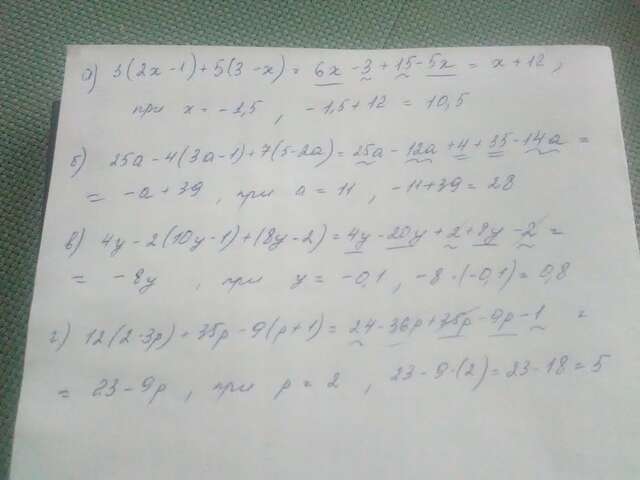 а) 3(2x-1)+5(3-x) = 6x-3+15-5x = x+12,
при x = -1,5, -1,5+12 = 10,5
б) 25a-4(3a-1)+7(5-2a) = 25a-12a+4+35-14a =
= -a+39, при a = 11, -11+39 = 28
в) 4y-2(10y-1)+(8y-2) = 4y-20y+2+8y-2 =
= -8y, при y = -0,1, -8·(-0,1) = 0,8
г) 12(2-3p)+35p-9(p+1) = 24-36p+35p-9p-1 =
= 23-9p, при p = 2, 23-9·(2) = 23-18 = 5